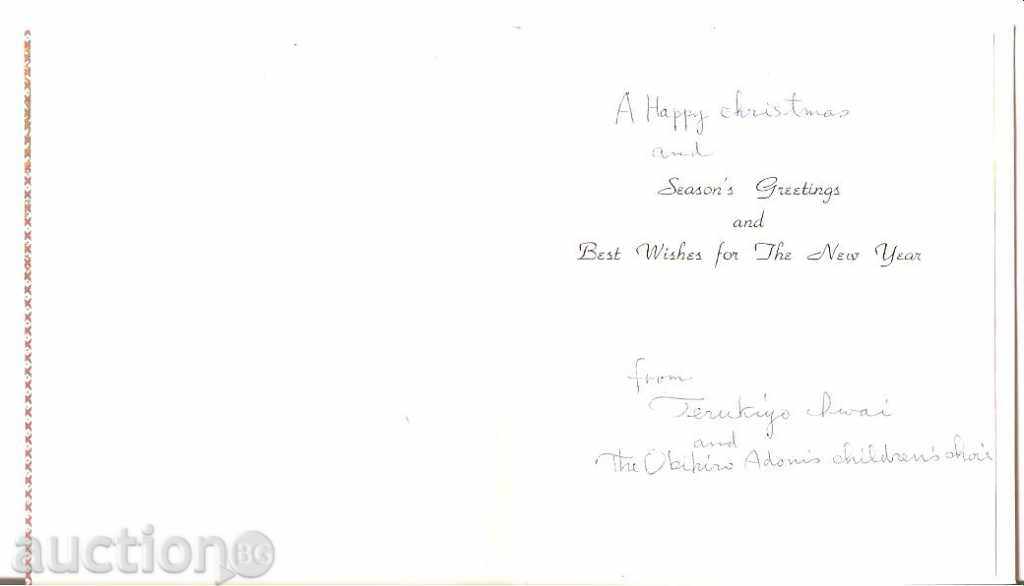 A Happy christmas
and
Season's Greetings
and
Best Wishes for The New Year
from
Terukiyo Iwai
and
The Obihiro Adonis children's choir
auction BG